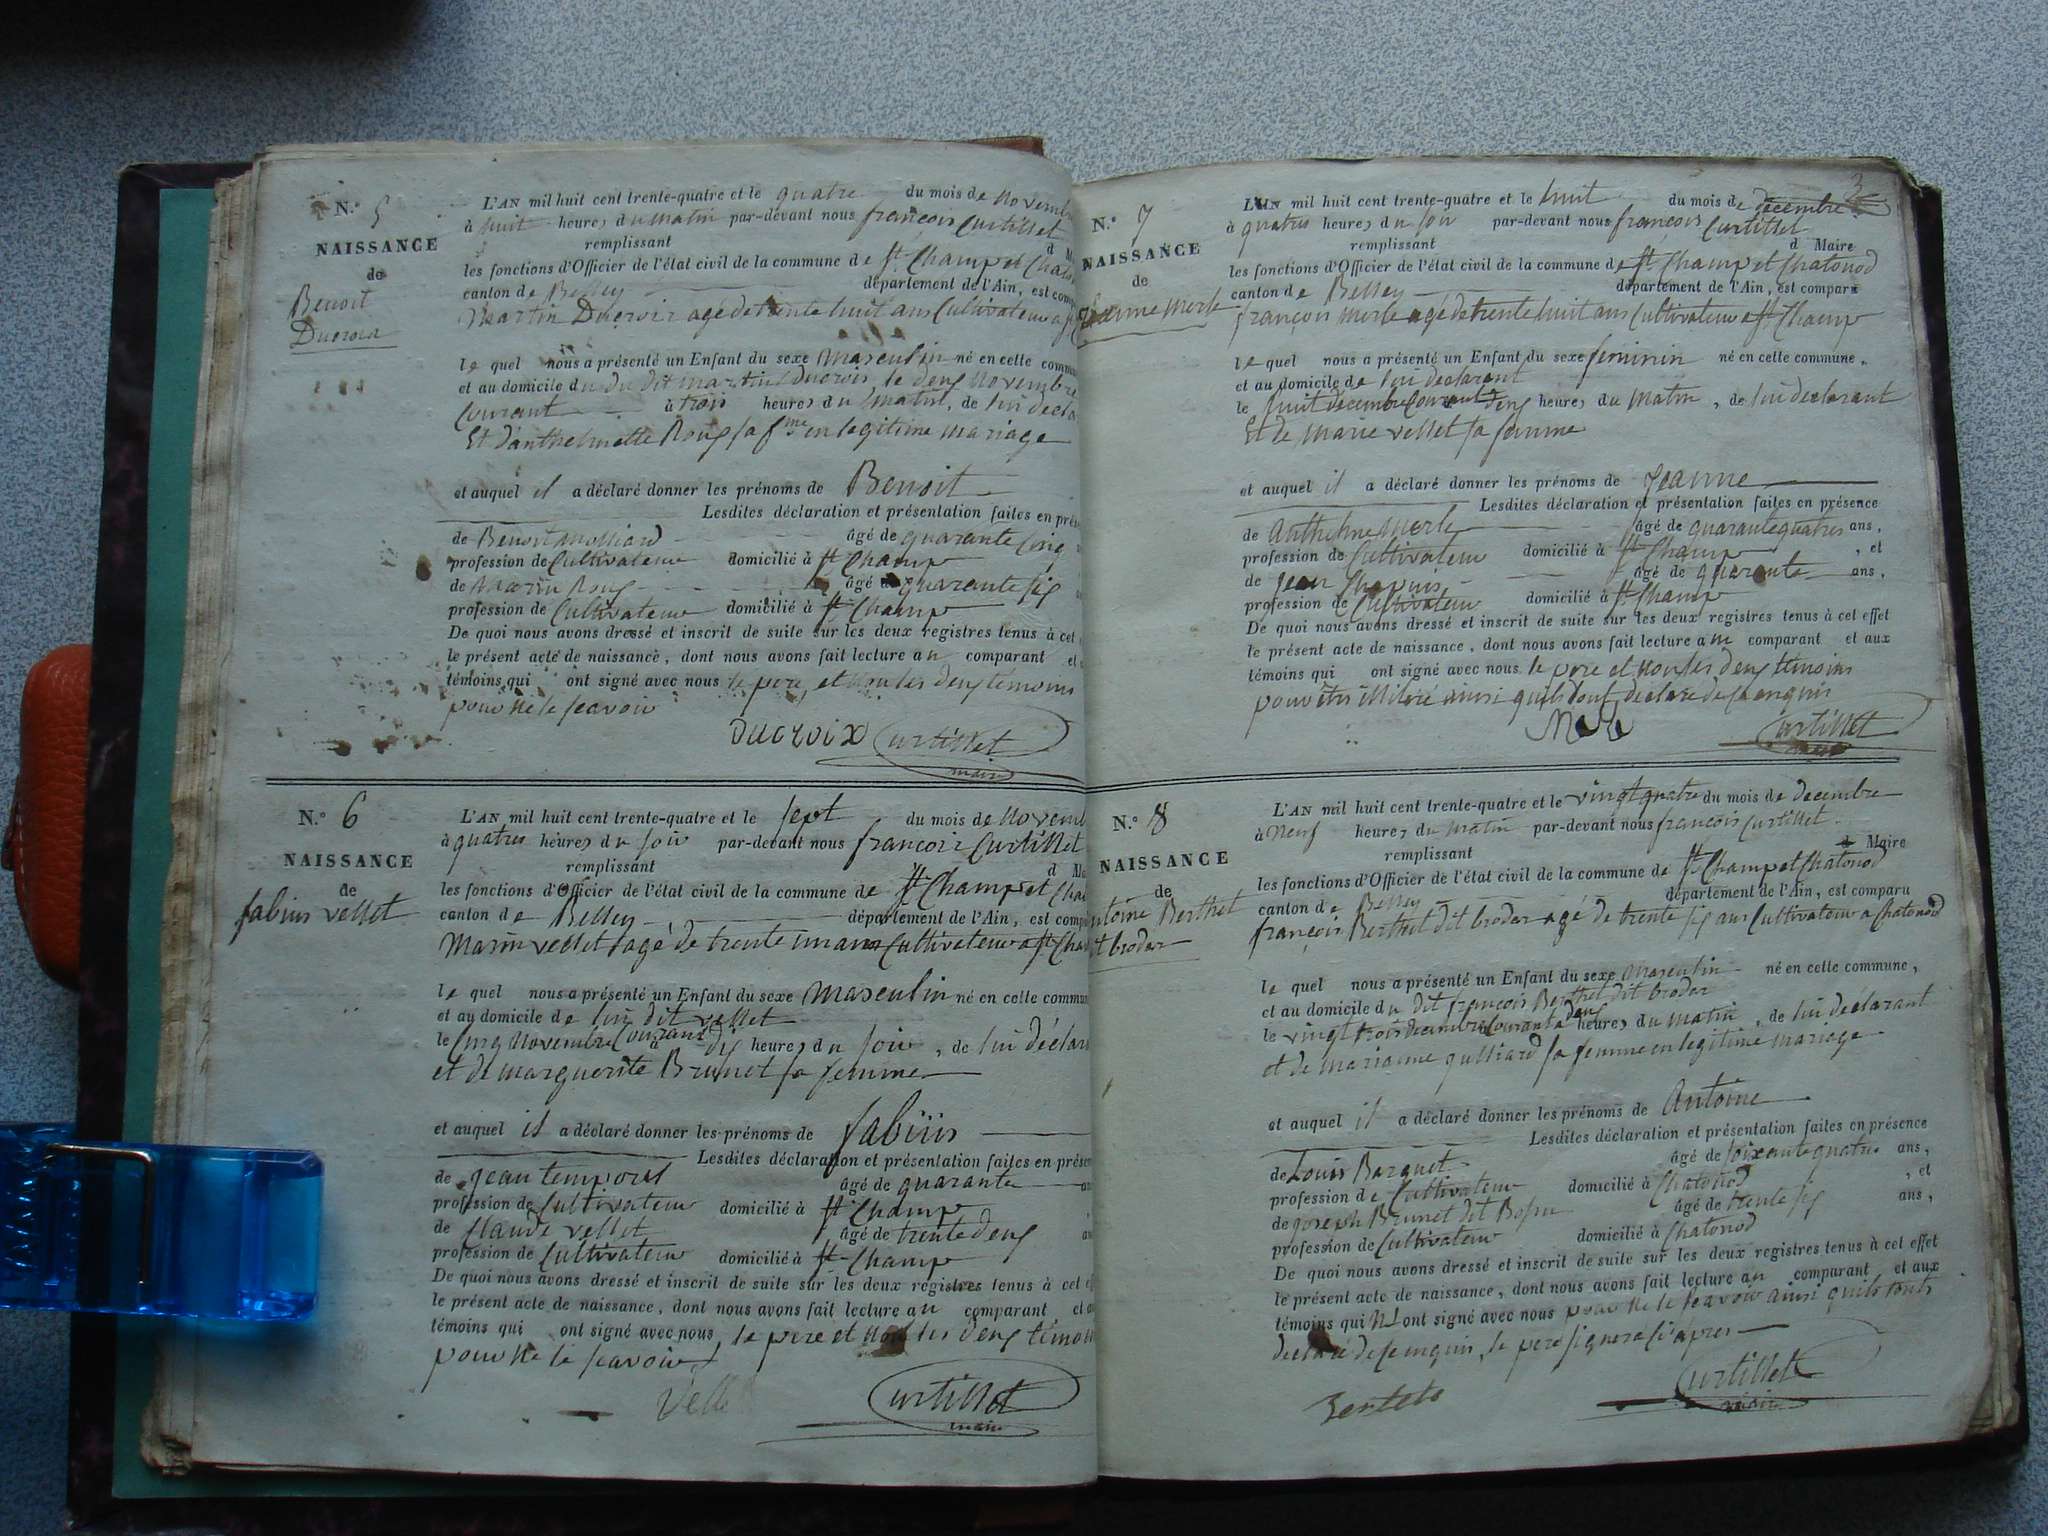 N.° 5
NAISSANCE
de
Benoit
Ducroix
L'AN mil huit cent trente-quatre et le quatre du mois de Novembre
à huit heures du matin par-devant nous françois Curtillet
remplissant
les fonctions d'Officier de l'état civil de la commune de St Champ et
canton de Belley département de l'Ain, est
Martin Ducroix agé de trente huit ans Cultivateur a
le quel nous a présenté un Enfant du sexe masculin né en cette
et au domicile du du dit martin Ducroix, le deux Novembre
Courant à trois heures du matin, de lui
Et d'anthelmette Roux sa fme en legitime mariage
et auquel il a déclaré donner les prénoms de Benoit
Lesdites déclaration et présentation faites en
de Benoit Molliard âgé de quarante Cinq
profession de Cultivateur domicilié à St Champ
de Marin Roux âgé de quarante six
profession de Cultivateur domicilié à St Champ
De quoi nous avons dressé et inscrit de suite sur les deux registres tenus à cet
le présent acte de naissance, dont nous avons fait lecture au comparant et
témoins qui ont signé avec nous le pere, et non les deux témoins
pour ne le scavoir
Ducroix Curtillet
maire
N.° 6
NAISSANCE
de
fabius vellet
L'AN mil huit cent trente-quatre et le sept du mois de
à quatres heures du soir par-devant nous françois Curtillet
remplissant
les fonctions d'Officier de l'état civil de la commune de St Champ et
canton de Belley département de l'Ain, est
Marin vellet agé de trente un ans Cultivateur a St
le quel nous a présenté un Enfant du sexe masculin né en cette
et au domicile de lui dit vellet
le Cinq Novembre Courant à dix heures du soir, de lui
et de marguerite Brunet sa femme
et auquel il a déclaré donner les prénoms de fabius
Lesdites déclaration et présentation faites en
de jean âgé de quarante
profession de Cultivateur domicilié à St Champ
de Claude vellet âgé de trente deux
profession de Cultivateur domicilié à St Champ
De quoi nous avons dressé et inscrit de suite sur les deux registres tenus à cet
le présent acte de naissance, dont nous avons fait lecture au comparant et
témoins qui ont signé avec nous, le pere et non les deux
pour ne le scavoir
Curtillet
maire
3
N.° 7
NAISSANCE
de
Jeanne Merle
L'AN mil huit cent trente-quatre et le huit du mois de decembre
à quatres heures du soir par-devant nous françois Curtillet
remplissant d Maire
les fonctions d'Officier de l'état civil de la commune de St Champ et Chatonod
canton de Belley département de l'Ain, est comparu
françois Merle agé de trente huit ans Cultivateur a St Champ
le quel nous a présenté un Enfant du sexe feminin né en cette commune,
et au domicile de lui declarant
le huit decembre Courant à deux heures du matin, de lui declarant
Et de Marie vellet sa femme
et auquel il a déclaré donner les prénoms de Jeanne
Lesdites déclaration et présentation faites en présence
de Anthelme Merle âgé de quarante quatres ans,
profession de Cultivateur domicilié à St Champ, et
de jean Chapuis âgé de quarante ans,
profession de Cultivateur domicilié à St Champ
De quoi nous avons dressé et inscrit de suite sur les deux registres tenus à cet effet
le présent acte de naissance, dont nous avons fait lecture au comparant et aux
témoins qui ont signé avec nous le pere et non les deux témoins
pour être illitéré ainsi qu'ils l'ont déclaré de ce enquis
Curtillet
maire
N.° 8
NAISSANCE
de
Berthet
dit brodar
L'AN mil huit cent trente-quatre et le vingt quatre du mois de decembre
à neuf heures du matin par-devant nous françois Curtillet
remplissant d Maire
les fonctions d'Officier de l'état civil de la commune de St Champ et Chatonod
canton de Belley département de l'Ain, est comparu
françois Berthet dit brodar agé de trente six ans Cultivateur a Chatonod
le quel nous a présenté un Enfant du sexe masculin né en cette commune,
et au domicile du dit françois Berthet dit brodar
le vingt trois decembre Courant à deux heures du matin, de lui déclarant
et de marianne gulliard sa femme en legitime mariage
et auquel il a déclaré donner les prénoms de Antoine
Lesdites déclaration et présentation faites en présence
de Louis Barquet âgé de soixante quatres ans,
profession de Cultivateur domicilié à Chatonod, et
de joseph Brunet dit âgé de trente six ans,
profession de Cultivateur domicilié à Chatonod
De quoi nous avons dressé et inscrit de suite sur les deux registres tenus à cet effet
le présent acte de naissance, dont nous avons fait lecture au comparant et aux
témoins qui ont signé avec nous pour ne le scavoir ainsi qu'ils l'ont
declaré de ce enquis, le pere signera ci après
Curtillet
maire